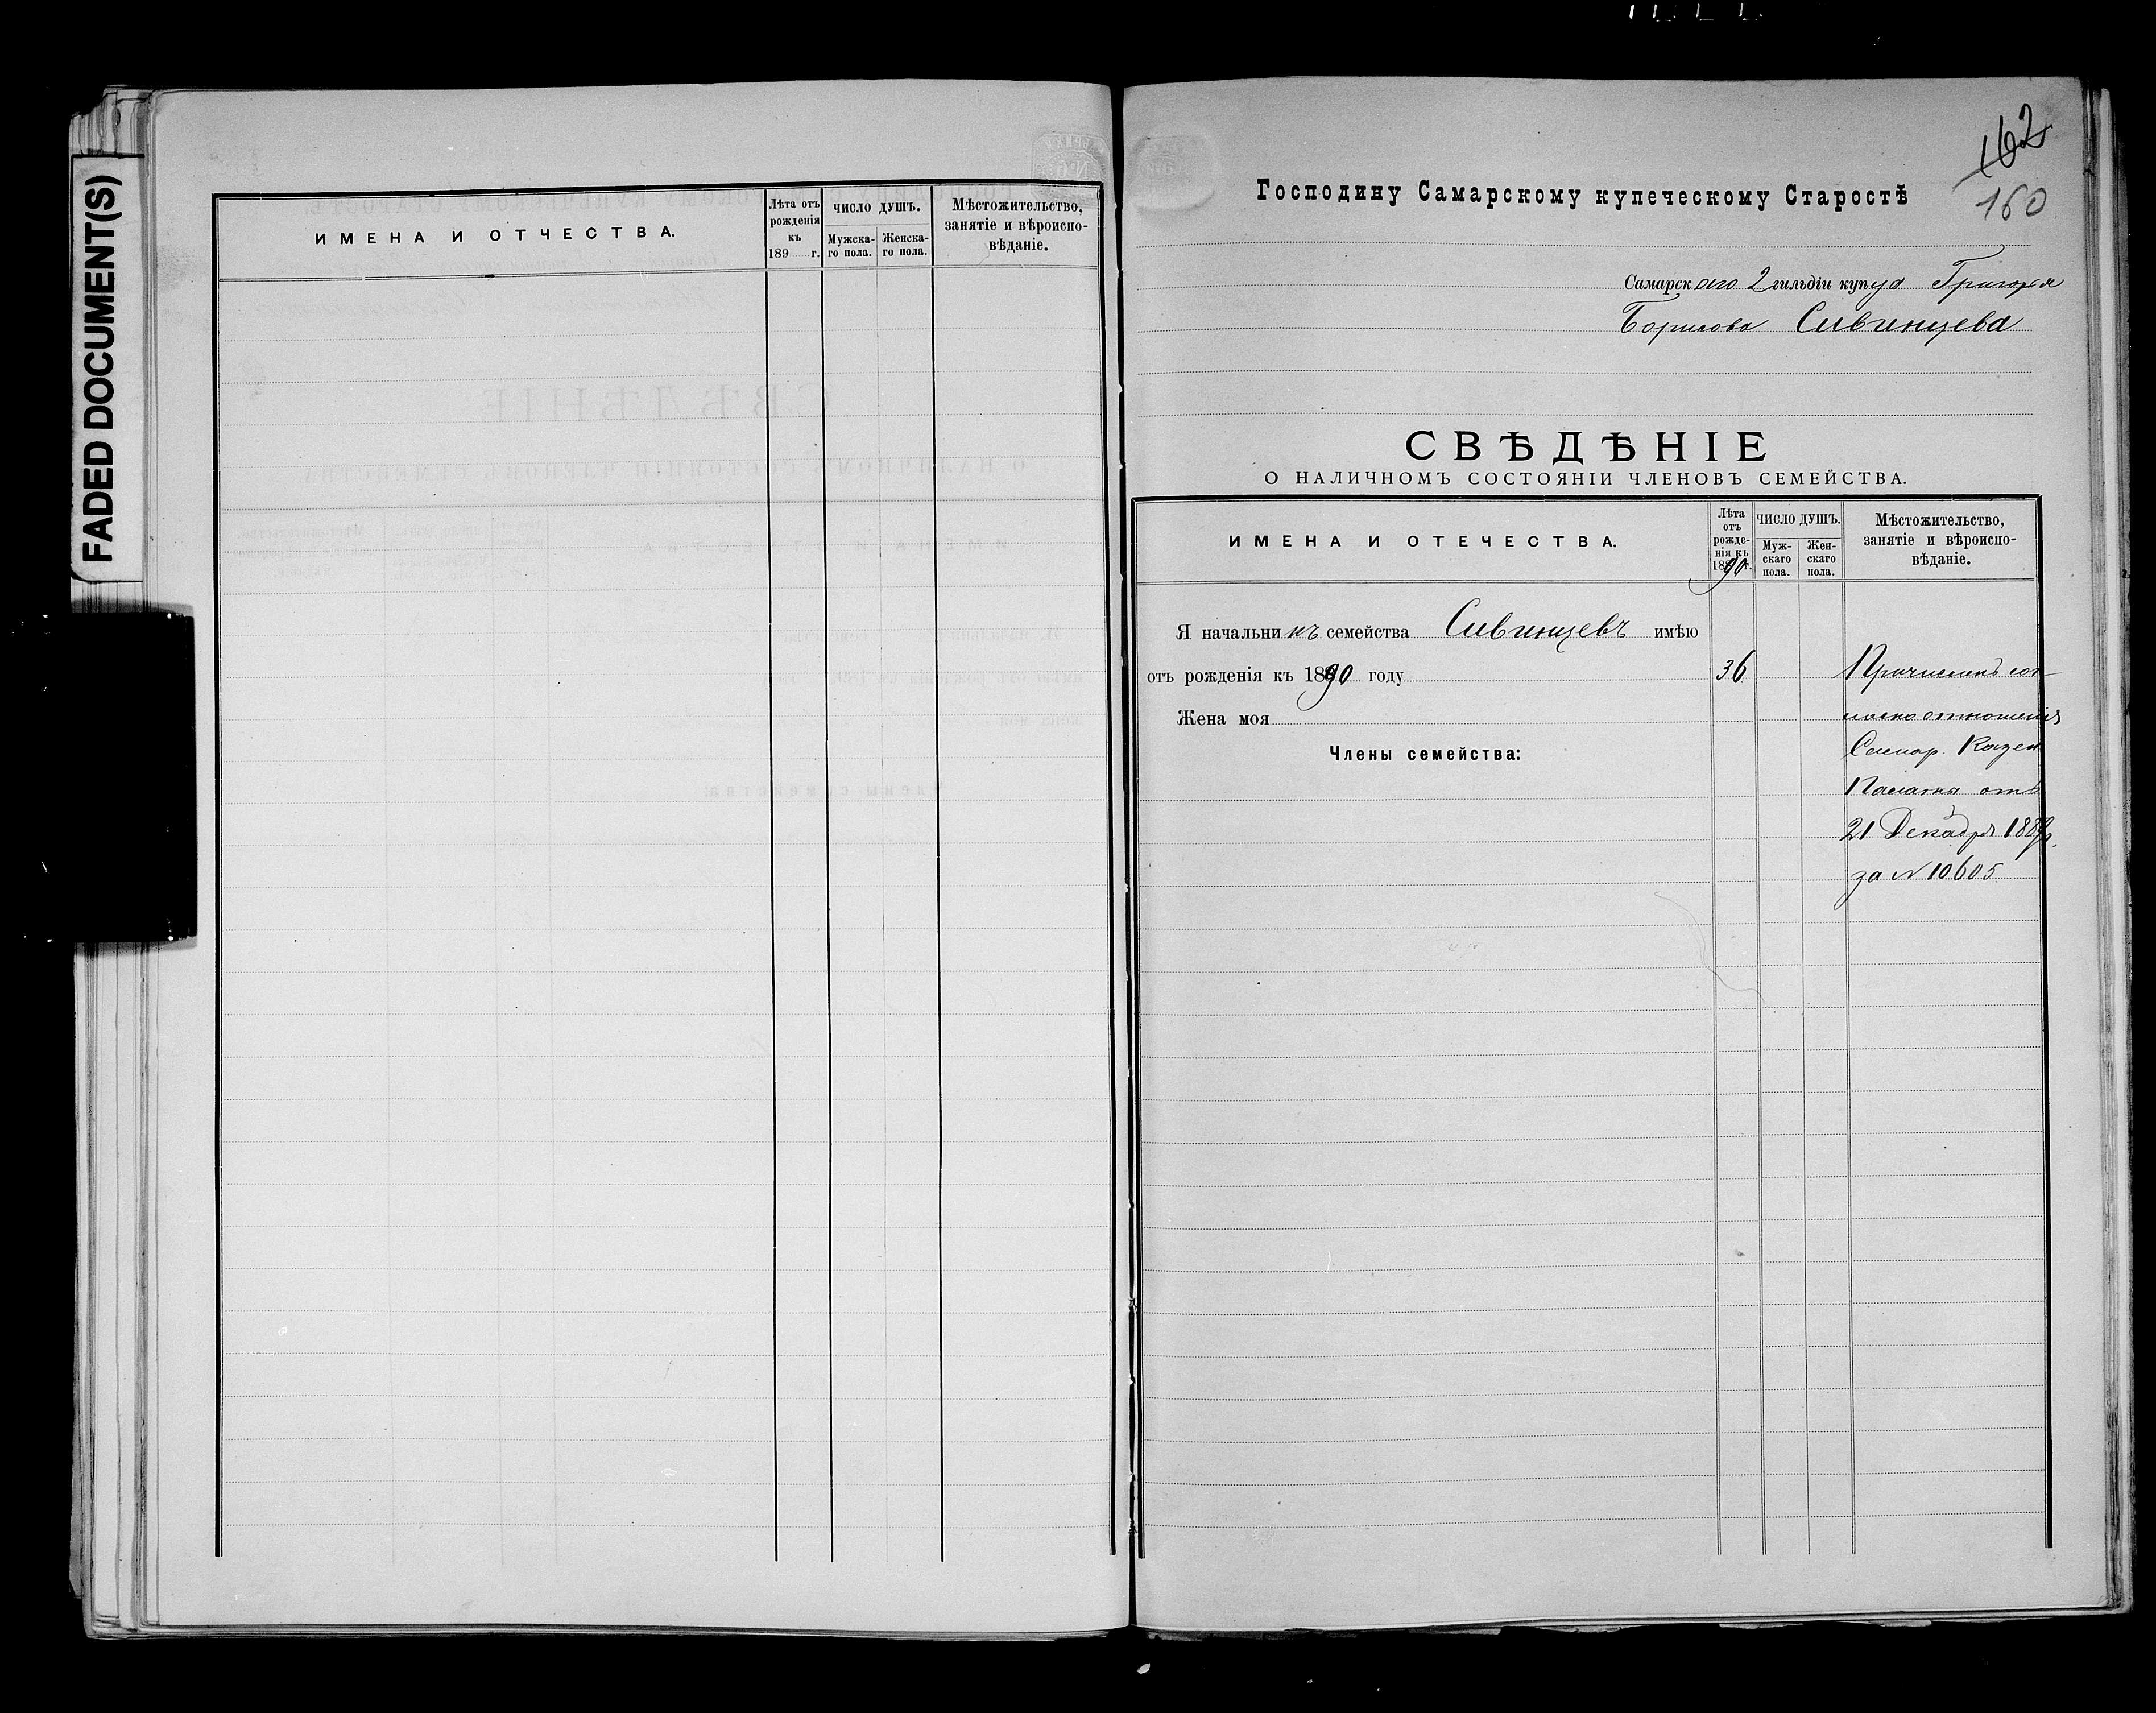 FADED DOCUMENT(S)
ИМЕНА И ОТЧЕСТВА.
Лѣта отъ рожденія къ 189 г.
ЧИСЛО ДУШЪ.
Мужска-го пола.
Женска-го пола.
Мѣстожительство,
занятіе и вѣроиспо-
вѣданіе.
162
160
Господину Самарскому купеческому Старостѣ
Самарскаго 2 гильдіи купца Григорья
Борисова Сивинцева
СВѢДѢНІЕ
О НАЛИЧНОМЪ СОСТОЯНІИ ЧЛЕНОВЪ СЕМЕЙСТВА.
ИМЕНА И ОТЕЧЕСТВА.
Лѣта
отъ
рожде-
нія къ
1890 г.
ЧИСЛО ДУШЪ.
Муж-
скаго
пола.
Жен-
скаго
пола.
Мѣстожительство,
занятіе и вѣроиспо-
вѣданіе.
Я начальникъ семейства Сивинцевъ имѣю
отъ рожденія къ 1890 году 36 Причисленъ сог-
Жена моя ласно отношенія
Члены семейства: Самар. Казен
Палаты отъ
21 Декабря 1889 г.
за № 10605